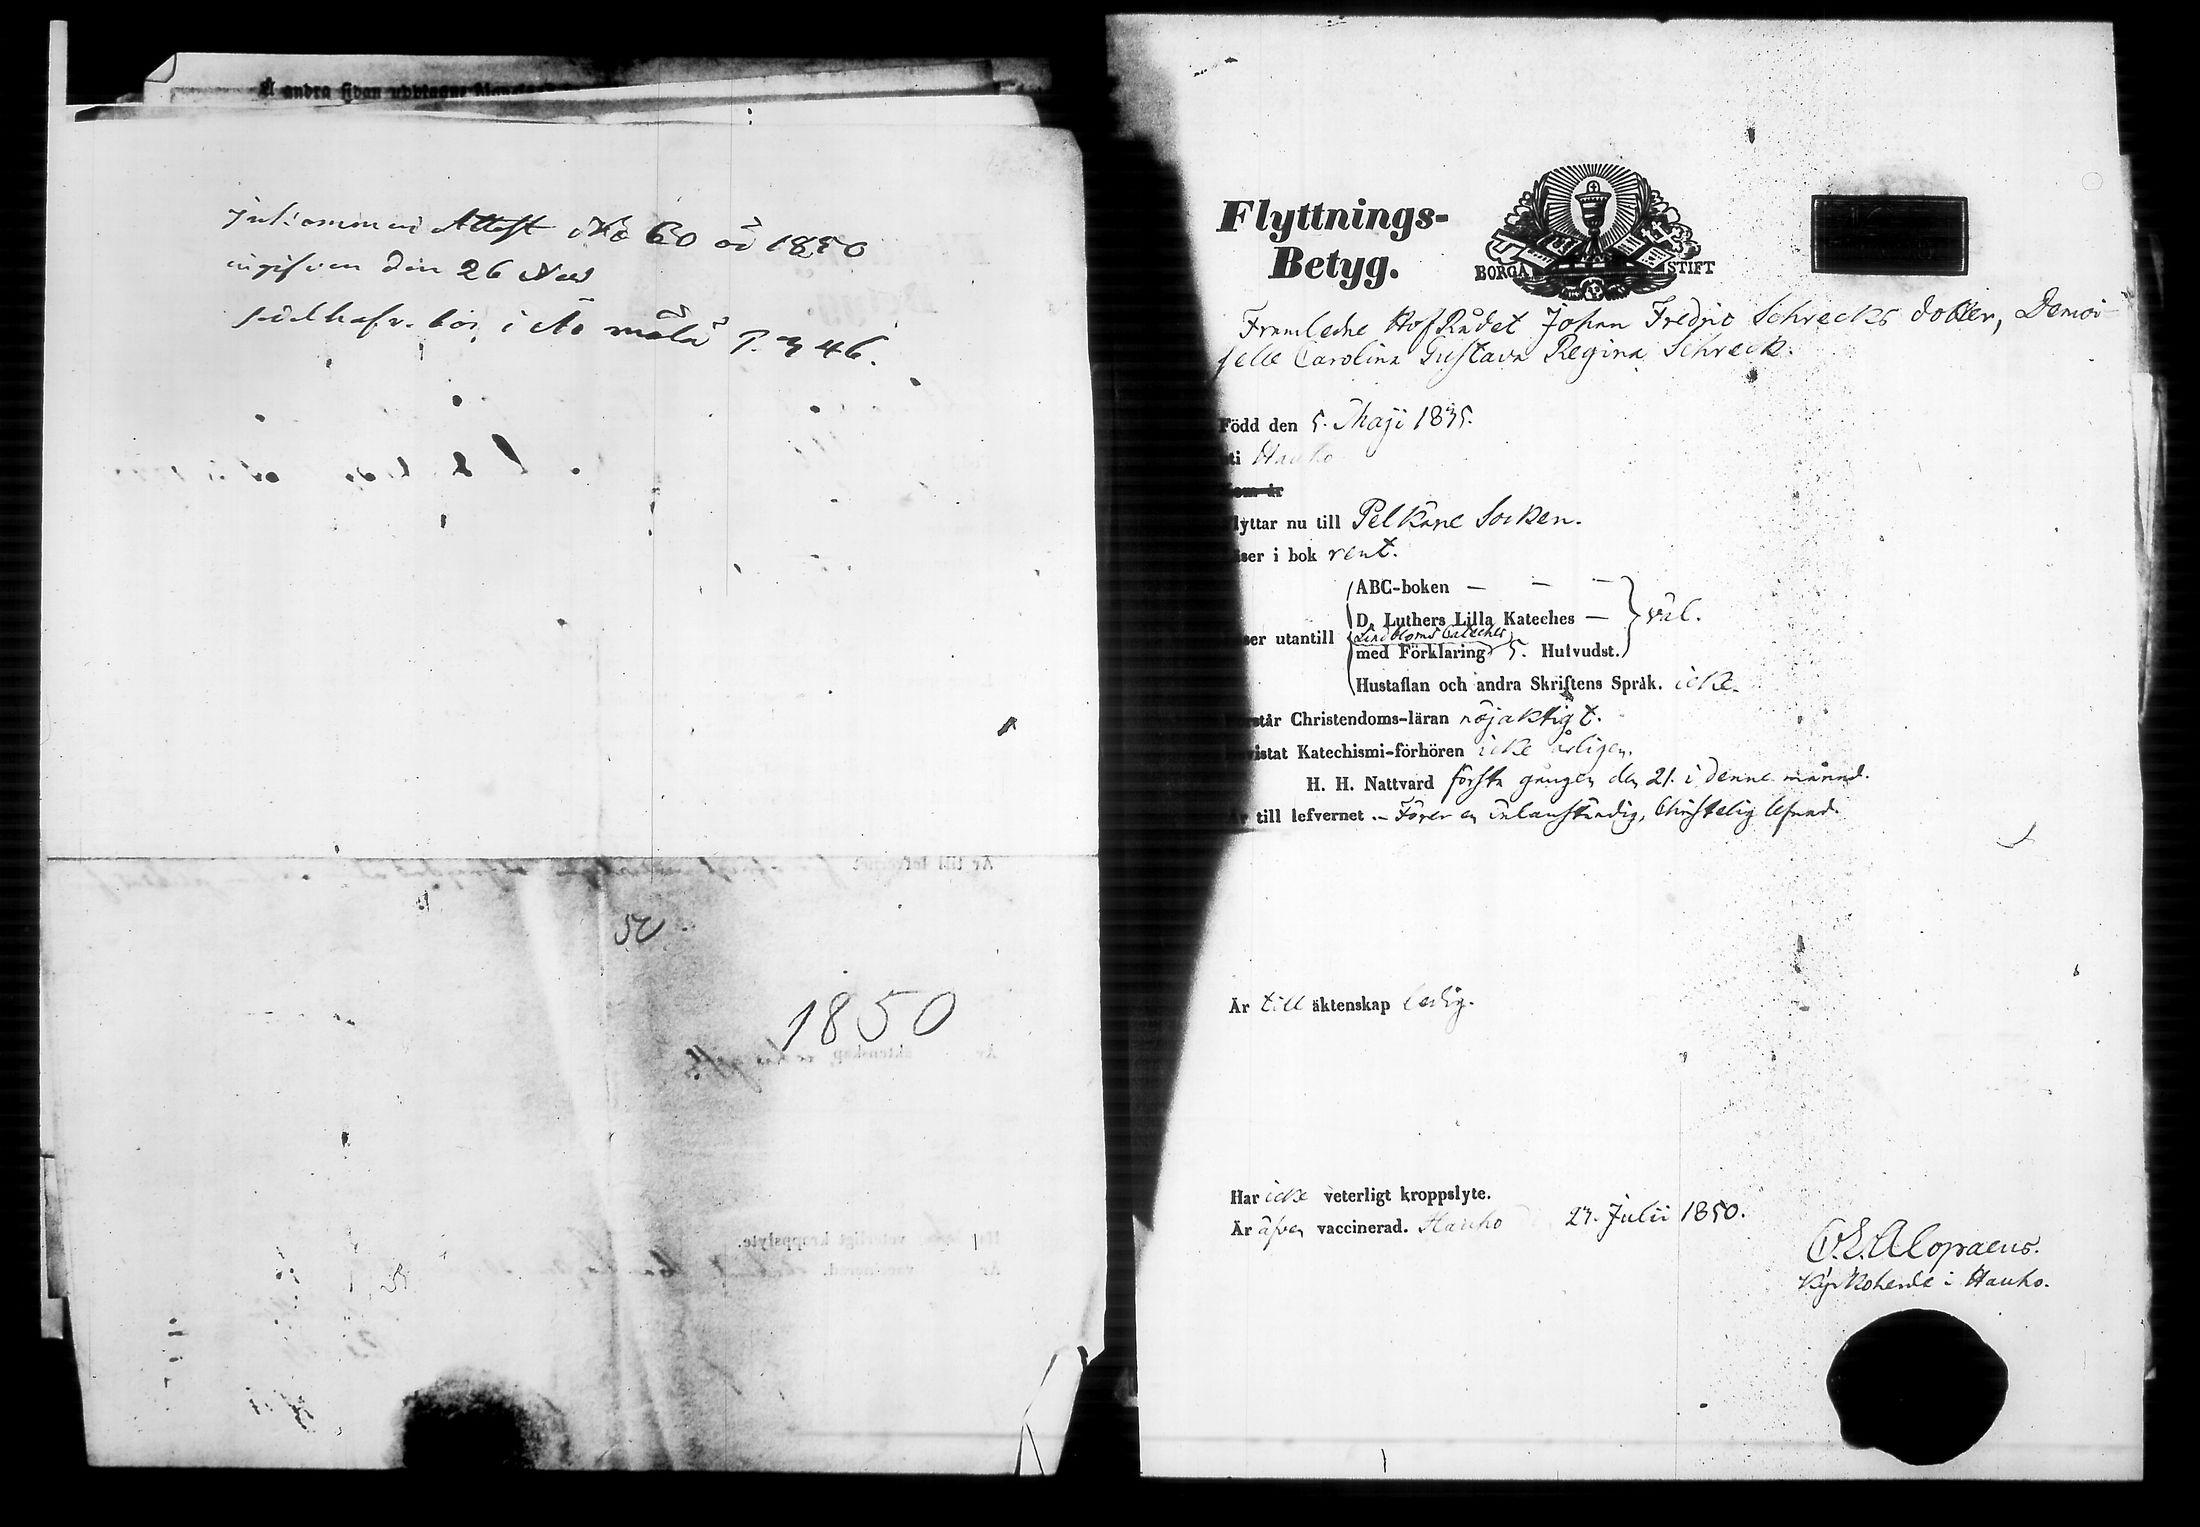 Inkommen Attest No 60 år 1850
ingifven den 26 Nov
1850
Flyttnings-
Betyg.
BORGÅ STIFT
Framledne HofRådet Johan Fredric Schrecks dotter, Demoi-
selle Carolina Gustava Regina Schreck.
Född den 5. Maji 1835.
i Hauho
Flyttar nu till Pelkäne Socken.
Läser i bok rent.
ABC-boken — — —
D. Luthers Lilla Kateches — väl.
Läser utantill Lindbloms Cateches
med Förklaring 5. Hufvudst.
Hustaflan och andra Skriftens Språk. icke.
Förstår Christendoms-läran nöjaktigt.
Bevistat Katechismi-förhören icke årligen.
H. H. Nattvard första gången den 21. i denne månad.
Är till lefvernet. – Förer en anständig, Christelig lefnad.
Är till äktenskap ledig.
Har icke veterligt kroppslyte.
Är äfven vaccinerad. Hauho 23. Julii 1850.
Alopaeus.
Kyrkoherde i Hauho.